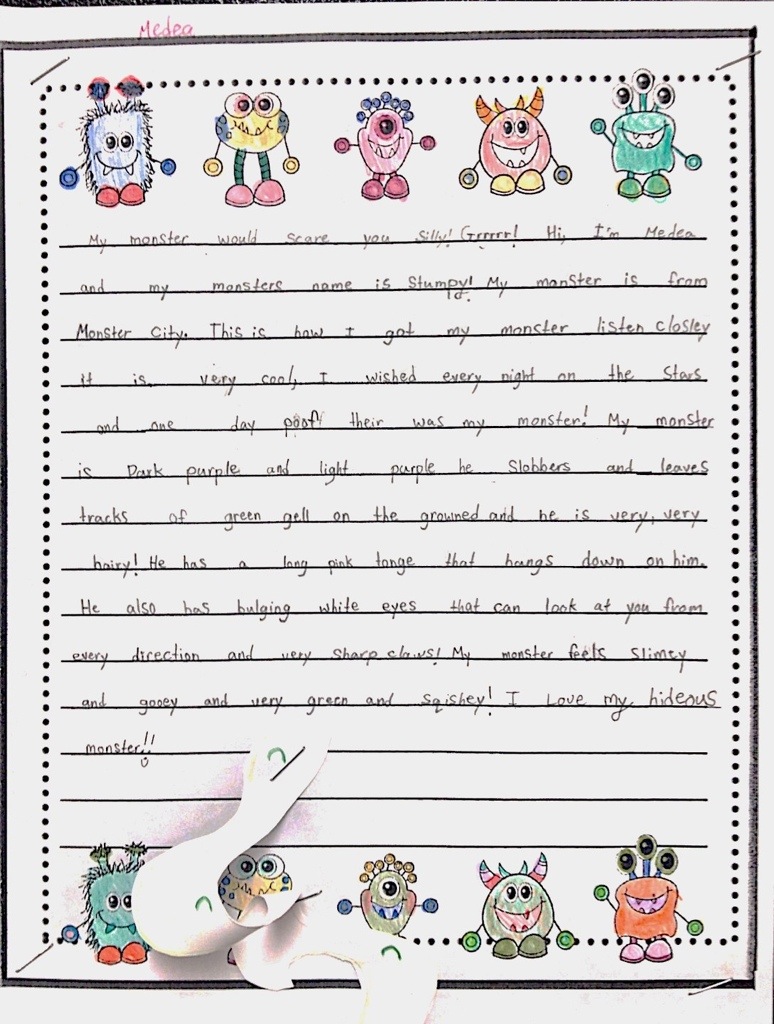 Medea
My monster would scare you silly! Grrrrr! Hi, I'm Medea
and my monsters name is Stumpy! My monster is from
Monster City. This is how I got my monster listen closley
it is very cool, I wished every night on the stars
and one day poof! their was my monster! My monster
is Dark purple and light purple he Slobbers and leaves
tracks of green gell on the growned and he is very, very
hairy! He has a long pink tonge that hangs down on him.
He also has bulging white eyes that can look at you from
every direction and very sharp claws! My monster feels slimey
and gooey and very green and squishey! I Love my hideous
monster!!